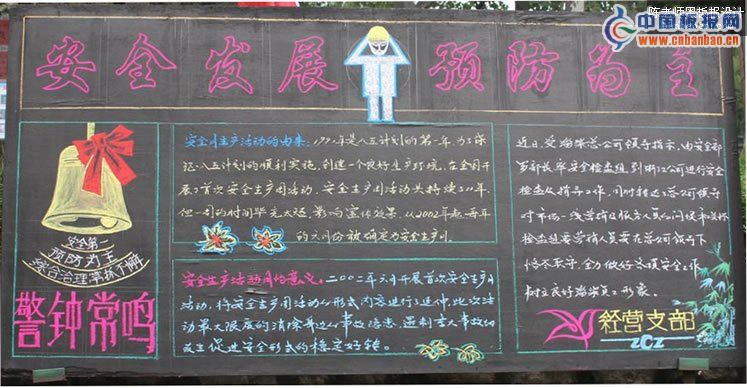 陈老师黑板报设计
中国板报网
www.cnbanbao.cn
安全发展 预防为主
安全第一
预防为主
综合治理常抓不懈
警钟常鸣
安全生产活动的由来:1991年是八五计划的第一年为了保
证八五计划的顺利实施,创造一个良好生产环境,在全国开
展了首次安全生产周活动,安全生产周活动共持续了11年
但一周的时间毕竟太短,影响宣传效果,从2002年起每年
的六月份被确定为安全生产月。
安全生产活动月的意义。二00二年六月开展首次安全生产月
活动,将安全生产周活动的形式内容进行了延伸,此次活
动最大限度的消除
促进安全形式的稳定好转。
近日,受
公司领导指示,由安全部
部长率安全检查组,到浙江公司进行安全
检查及指导工作,同时转达了总公司领导
对市场一线营销及服务人员
检查组要营销人员要在总公司领导下
恪尽职守,全力做好各项安全工作
树立良好
员工形象。
经营支部
ZGZ